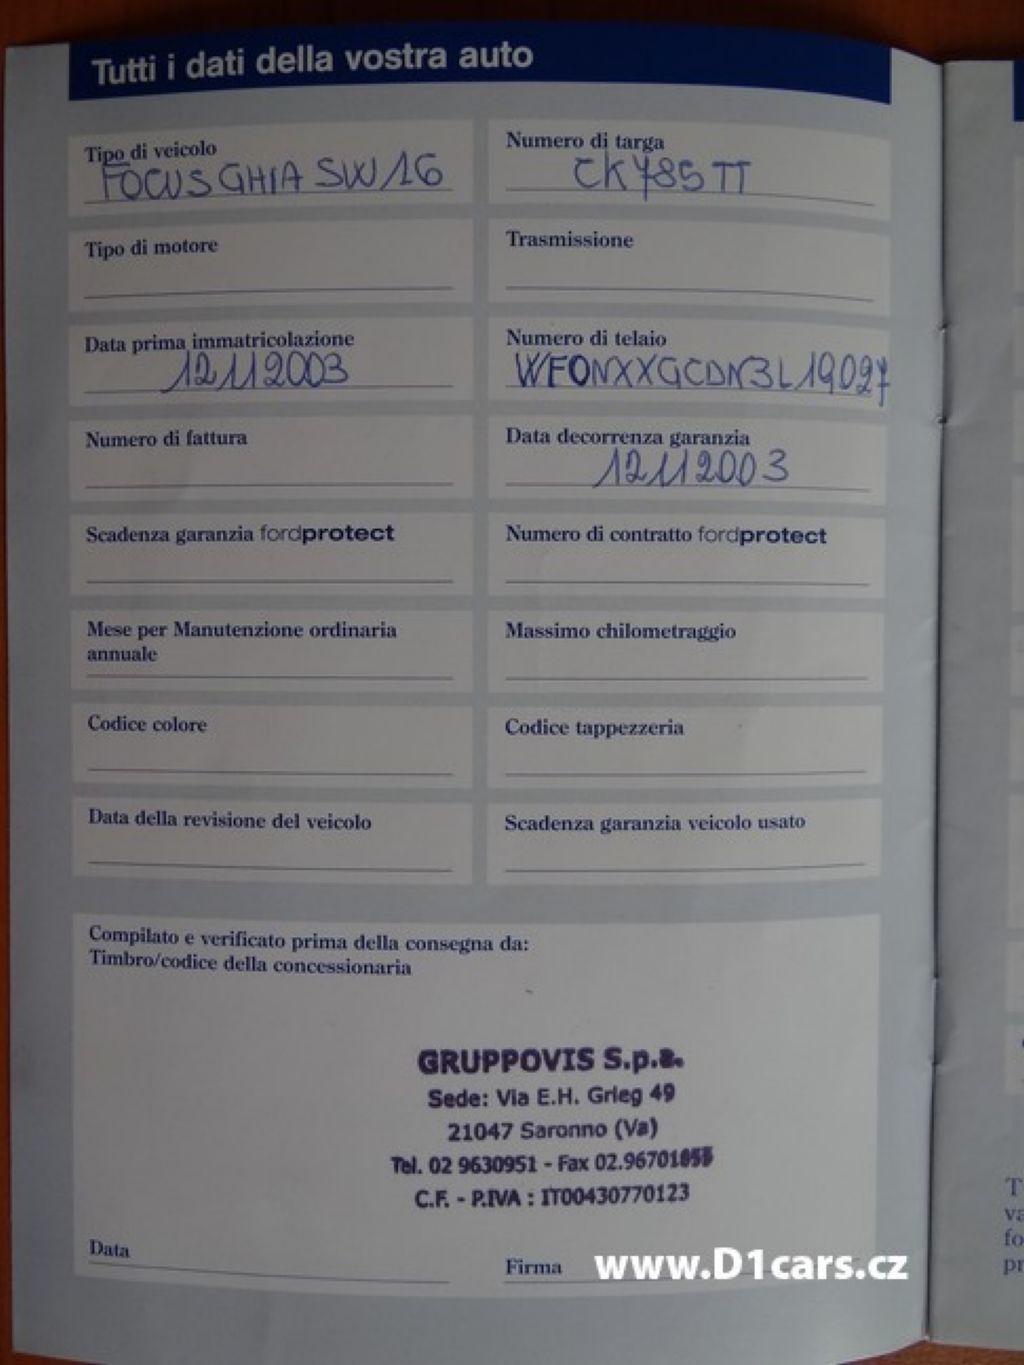 Tutti i dati della vostra auto
Tipo di veicolo
FOCUS GHIA SW 16
Numero di targa
CK785TT
Tipo di motore
Trasmissione
Data prima immatricolazione
12112003
Numero di telaio
WFONXXGCDN3L19027
Numero di fattura
Data decorrenza garanzia
12112003
Scadenza garanzia fordprotect
Numero di contratto fordprotect
Mese per Manutenzione ordinaria
annuale
Massimo chilometraggio
Codice colore
Codice tappezzeria
Data della revisione del veicolo
Scadenza garanzia veicolo usato
Compilato e verificato prima della consegna da:
Timbro/codice della concessionaria
GRUPPOVIS S.p.a.
Sede: Via E.H. Grieg 49
21047 Saronno (Va)
Tel. 02 9630951 - Fax
C.F. - P.IVA : IT00430770123
Data
Firma
www.D1cars.cz